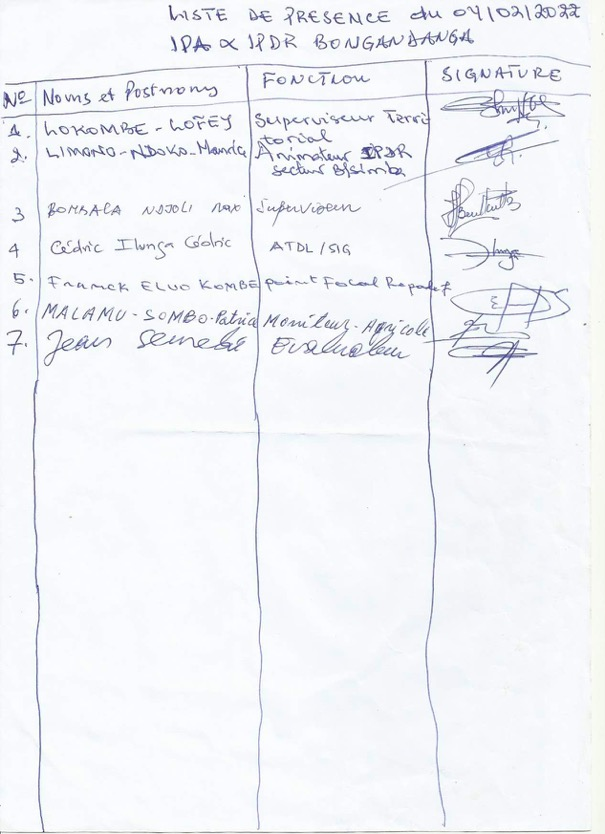 LISTE DE PRESENCE du 04/02/2022
IPA & IPDR BONGANDANGA
No Noms et Postnoms FONCTION SIGNATURE
1. LOKOMBE - LOFEY Superviseur Terri
torial
2. LIMONO-NDOKO-Maurice Animateur IPDR
secteur B/simba
3 BOMBACA NDJOLI MAX Superviseur
4 Cédric Ilunga Cédric ATDL/SIG
5. Franck ELUO KOMBE point Focal
6. MALAMU-SOMBO-Patrice Moniteur-Agricole
7. Jean Evaluateur